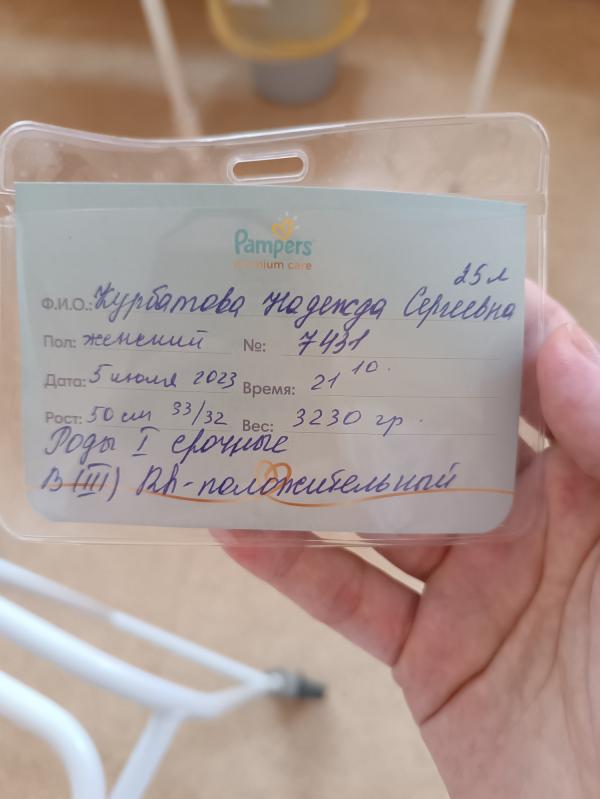 Pampers
premium care
25 л
Ф.И.О.: Курбатова Надежда Сергеевна
Пол: женский №: 7431
Дата: 5 июля 2023 Время: 21 10.
Рост: 50 см 33/32 Вес: 3230 гр.
Роды I срочные
B (III) Rh-положительный